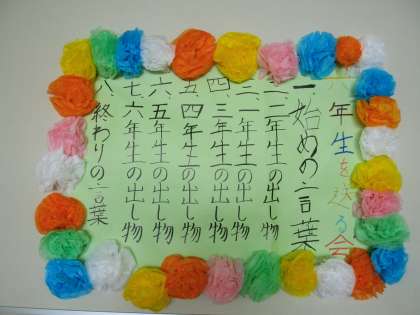 六年生を送る会
一、始めの言葉
二、二年生の出し物
三、一年生の出し物
四、三年生の出し物
五、四年生の出し物
六、五年生の出し物
七、六年生の出し物
八、終わりの言葉